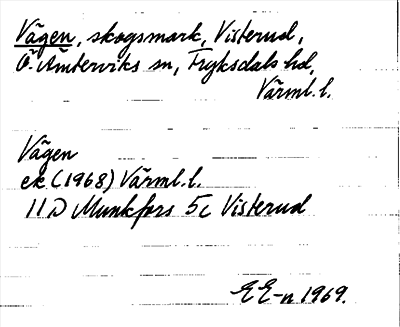 Vägen, skogsmark, Visterud,
Ö. Ämterviks sn, Fryksdals hd,
Värml. l.
Vägen
ek (1968) Värml. l.
11 D Munkfors 5c Visterud
EE-n 1969.